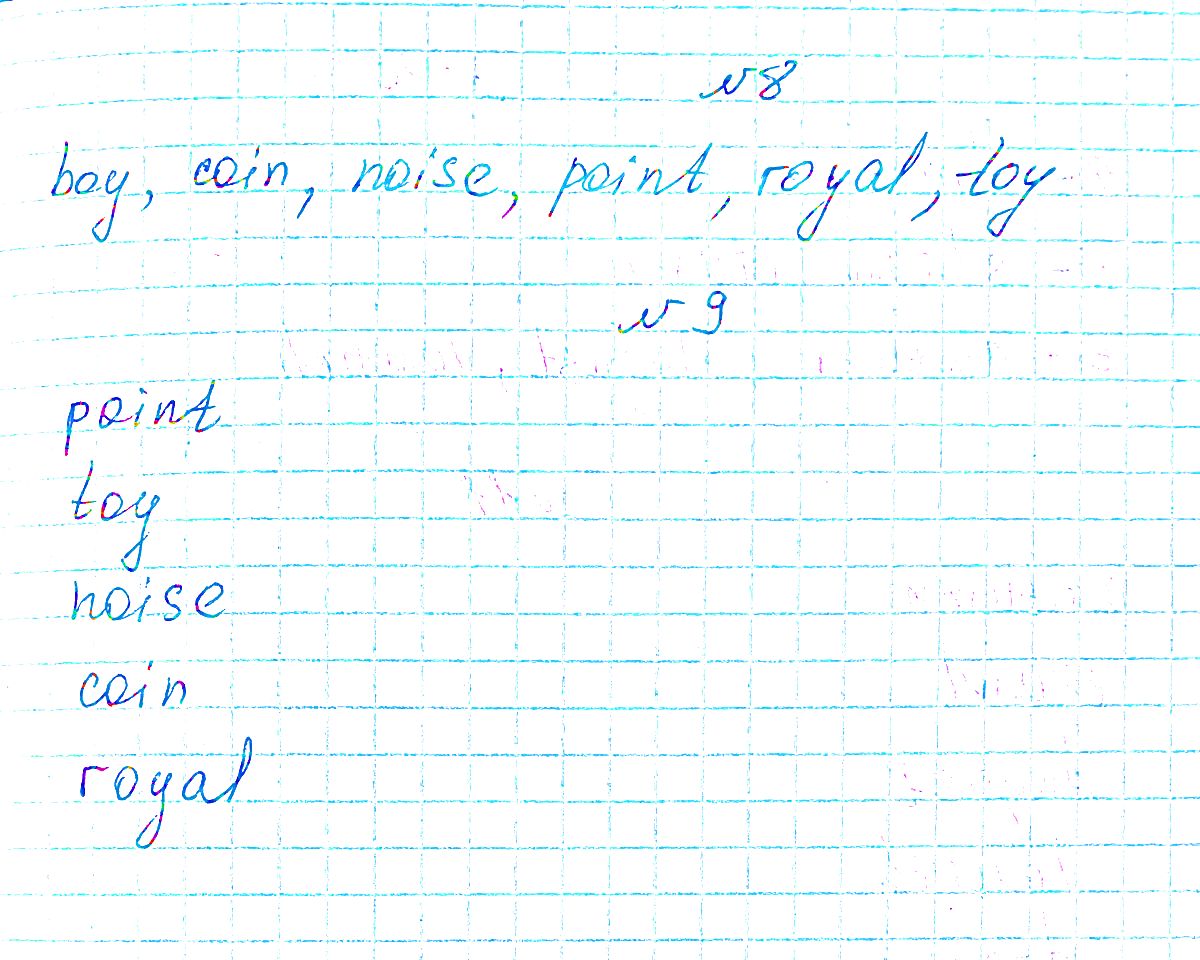 №8
boy, coin, noise, point, royal, toy
№9
point
toy
noise
coin
royal